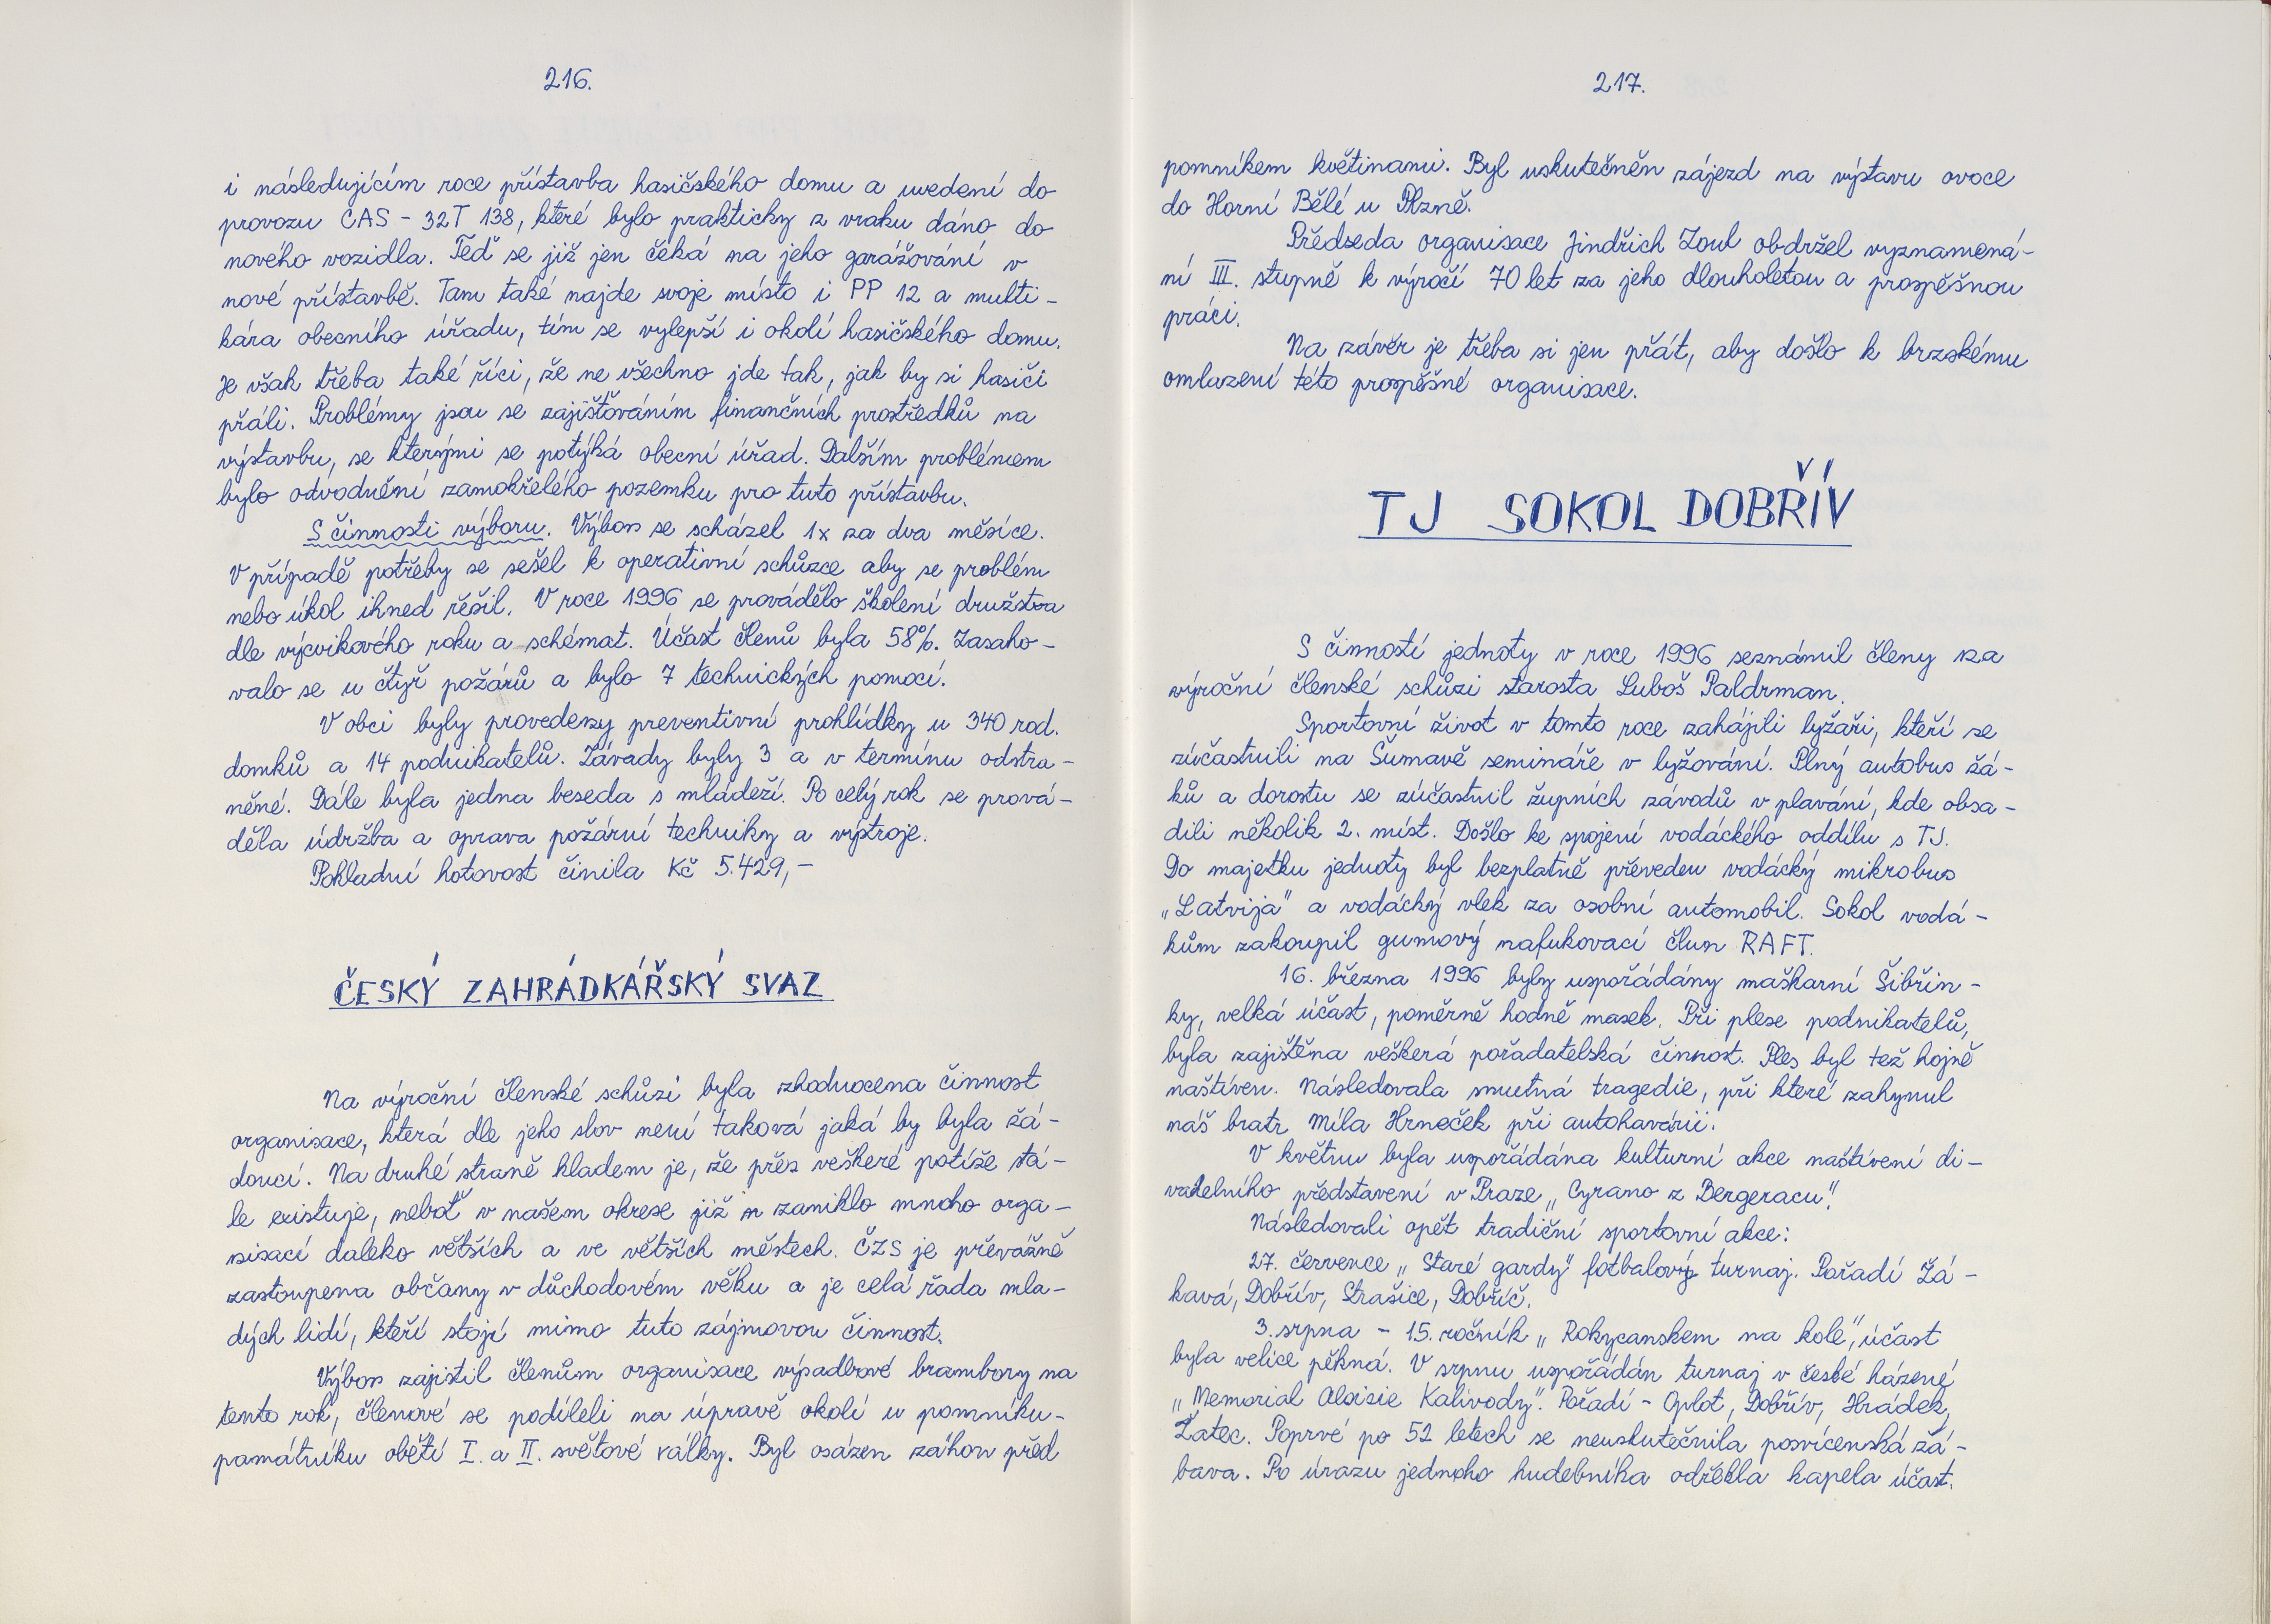 216.
i následujícím roce přístavba hasičského domu a uvedení do
provozu CAS - 32T 138, které bylo prakticky z vraku dáno do
nového vozidla. Teď se již jen čeká na jeho garážování v
nové přístavbě. Tam také najde svoje místo i PP 12 a multi -
kára obecního úřadu, tím se vylepší i okolí hasičského domu.
Je však třeba také říci, že ne všechno jde tak, jak by si hasiči
přáli. Problémy jsou se zajišťováním finančních prostředků na
výstavbu, se kterými se potýká obecní úřad. Dalším problémem
bylo odvodnění zamokřelého pozemku pro tuto přístavbu.
S činnosti výboru. Výbor se scházel 1x za dva měsíce.
V případě potřeby se sešel k operativní schůzce aby se problém
nebo úkol ihned řešil. V roce 1996 se provádělo školení družstva
dle výcvikového roku a schémat. Účast členů byla 58%. Zasaho -
valo se u čtyř požárů a bylo 7 technických pomocí.
V obci byly provedeny preventivní prohlídky u 340 rod.
domků a 14 podnikatelů. Závady byly 3 a v termínu odstra -
něné. Dále byla jedna beseda s mládeží. Po celý rok se prová -
děla údržba a oprava požární techniky a výstroje.
Pokladní hotovost činila Kč 5.429,-
ČESKÝ ZAHRÁDKÁŘSKÝ SVAZ
Na výroční členské schůzi byla zhodnocena činnost
organisace, která dle jeho slov není taková jaká by byla žá -
doucí. Na druhé straně kladem je, že přes veškeré potíže stá -
le existuje, neboť v našem okrese již zaniklo mnoho orga -
nisací daleko větších a ve větších městech. ČZS je převážně
zastoupena občany v důchodovém věku a je celá řada mla -
dých lidí, kteří stojí mimo tuto zájmovou činnost.
Výbor zajistil členům organisace výsadbové brambory na
tento rok, členové se podíleli na úpravě okolí u pomníku -
památníku obětí I. a II. světové války. Byl osázen záhon před
217.
pomníkem květinami. Byl uskutečněn zájezd na výstavu ovoce
do Horní Bělé u Plzně.
Předseda organisace Jindřich Zoul obdržel vyznamená -
ní III. stupně k výročí 70 let za jeho dlouholetou a prospěšnou
práci.
Na závěr je třeba si jen přát, aby došlo k brzskému
omlazení této prospěšné organisace.
TJ SOKOL DOBŘÍV
S činností jednoty v roce 1996 seznámil členy na
výroční členské schůzi starosta Luboš Paldrman.
Sportovní život v tomto roce zahájili lyžaři, kteří se
zúčastnili na Šumavě semináře v lyžování. Plný autobus žá -
ků a dorostu se zúčastnil župních závodů v plavání, kde obsa -
dili několik 2. míst. Došlo ke spojení vodáckého oddílu s TJ.
Do majetku jednoty byl bezplatně převeden vodácký mikrobus
„Latvija" a vodácký vlek za osobní automobil. Sokol vodá -
kům zakoupil gumový nafukovací člun RAFT.
16. března 1996 byly uspořádány maškarní Šibřin -
ky, velká účast, poměrně hodně masek. Při plese podnikatelů,
byla zajištěna veškerá pořadatelská činnost. Ples byl též hojně
naštíven. Následovala smutná tragedie, při které zahynul
náš bratr Míla Hrneček při autohavárii.
V květnu byla uspořádána kulturní akce naštívení di -
vadelního představení v Praze „Cyrano z Bergeracu".
Následovali opět tradiční sportovní akce:
27. července „Staré gardy" fotbalový turnaj. Pořadí Žá -
kavá, Dobřív, Strašice, Dobříč.
3. srpna - 15. ročník „Rokycanskem na kole", účast
byla velice pěkná. V srpnu uspořádán turnaj v české házené
„Memorial Aloisie Kalivody". Pořadí - Oplot, Dobřív, Hrádek,
Žatec. Poprvé po 52 letech se neuskutečnila posvícenská zá -
bava. Po úrazu jednoho hudebníka odřekla kapela účast.